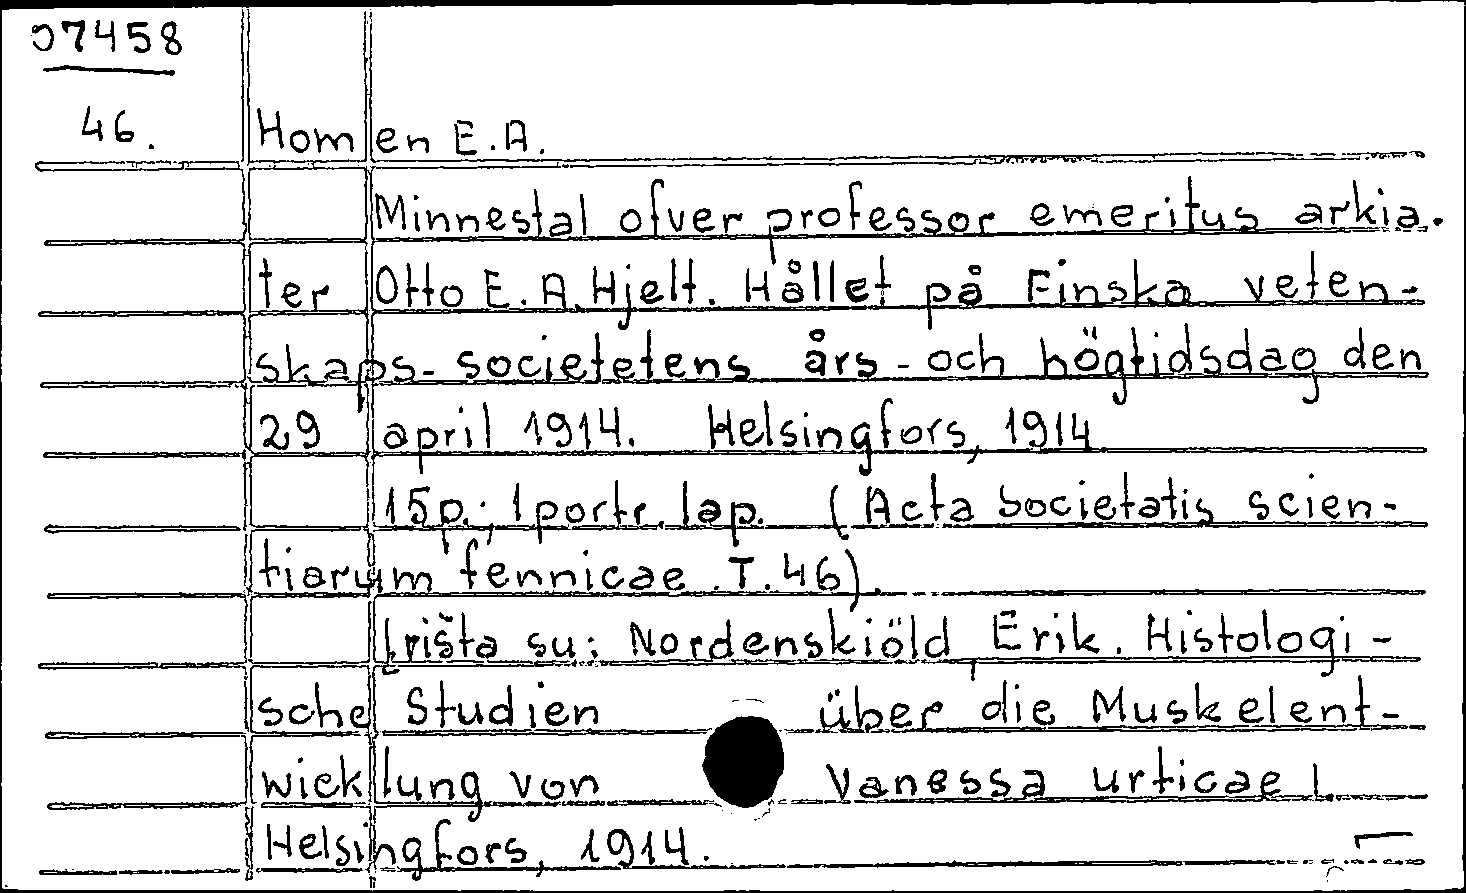 07458
46. Homen E.A.
Minnestal ofver professor emeritus arkia-
ter Otto E.A. Hjelt. Hållet på Finska veten-
skaps-societetens års-och högtidsdag den
29 april 1914. Helsingfors, 1914
15p.; 1portr. lap. (Acta Societatis scien-
tiarum fennicae. T.46).
Įrišta su: Nordenskiöld, Erik. Histologi-
sche Studien über die Muskelent-
wicklung von Vanessa urticae l.
Helsingfors, 1914.